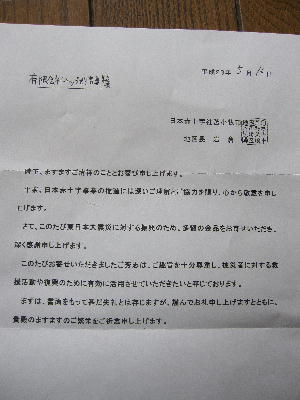 平成23年 5月 12日
有限会社
日本赤十字社苫小牧市地区
地区長 岩倉
謹啓、ますますご清祥のこととお喜び申し上げます。
平素、日本赤十字事業の推進には深いご理解とご協力を賜り、心から敬意を申し
上げます。
さて、このたび東日本大震災に対する救援のため、多額の金品をお寄せいただき、
深く感謝申し上げます。
このたびお寄せいただきましたご芳志は、ご趣旨を十分尊重し、被災者に対する救
援活動や復興のために有効に活用させていただきたいと存じております。
まずは、書面をもって甚だ失礼とは存じますが、謹んでお礼申し上げますとともに、
貴殿のますますのご繁栄をご祈念申し上げます。